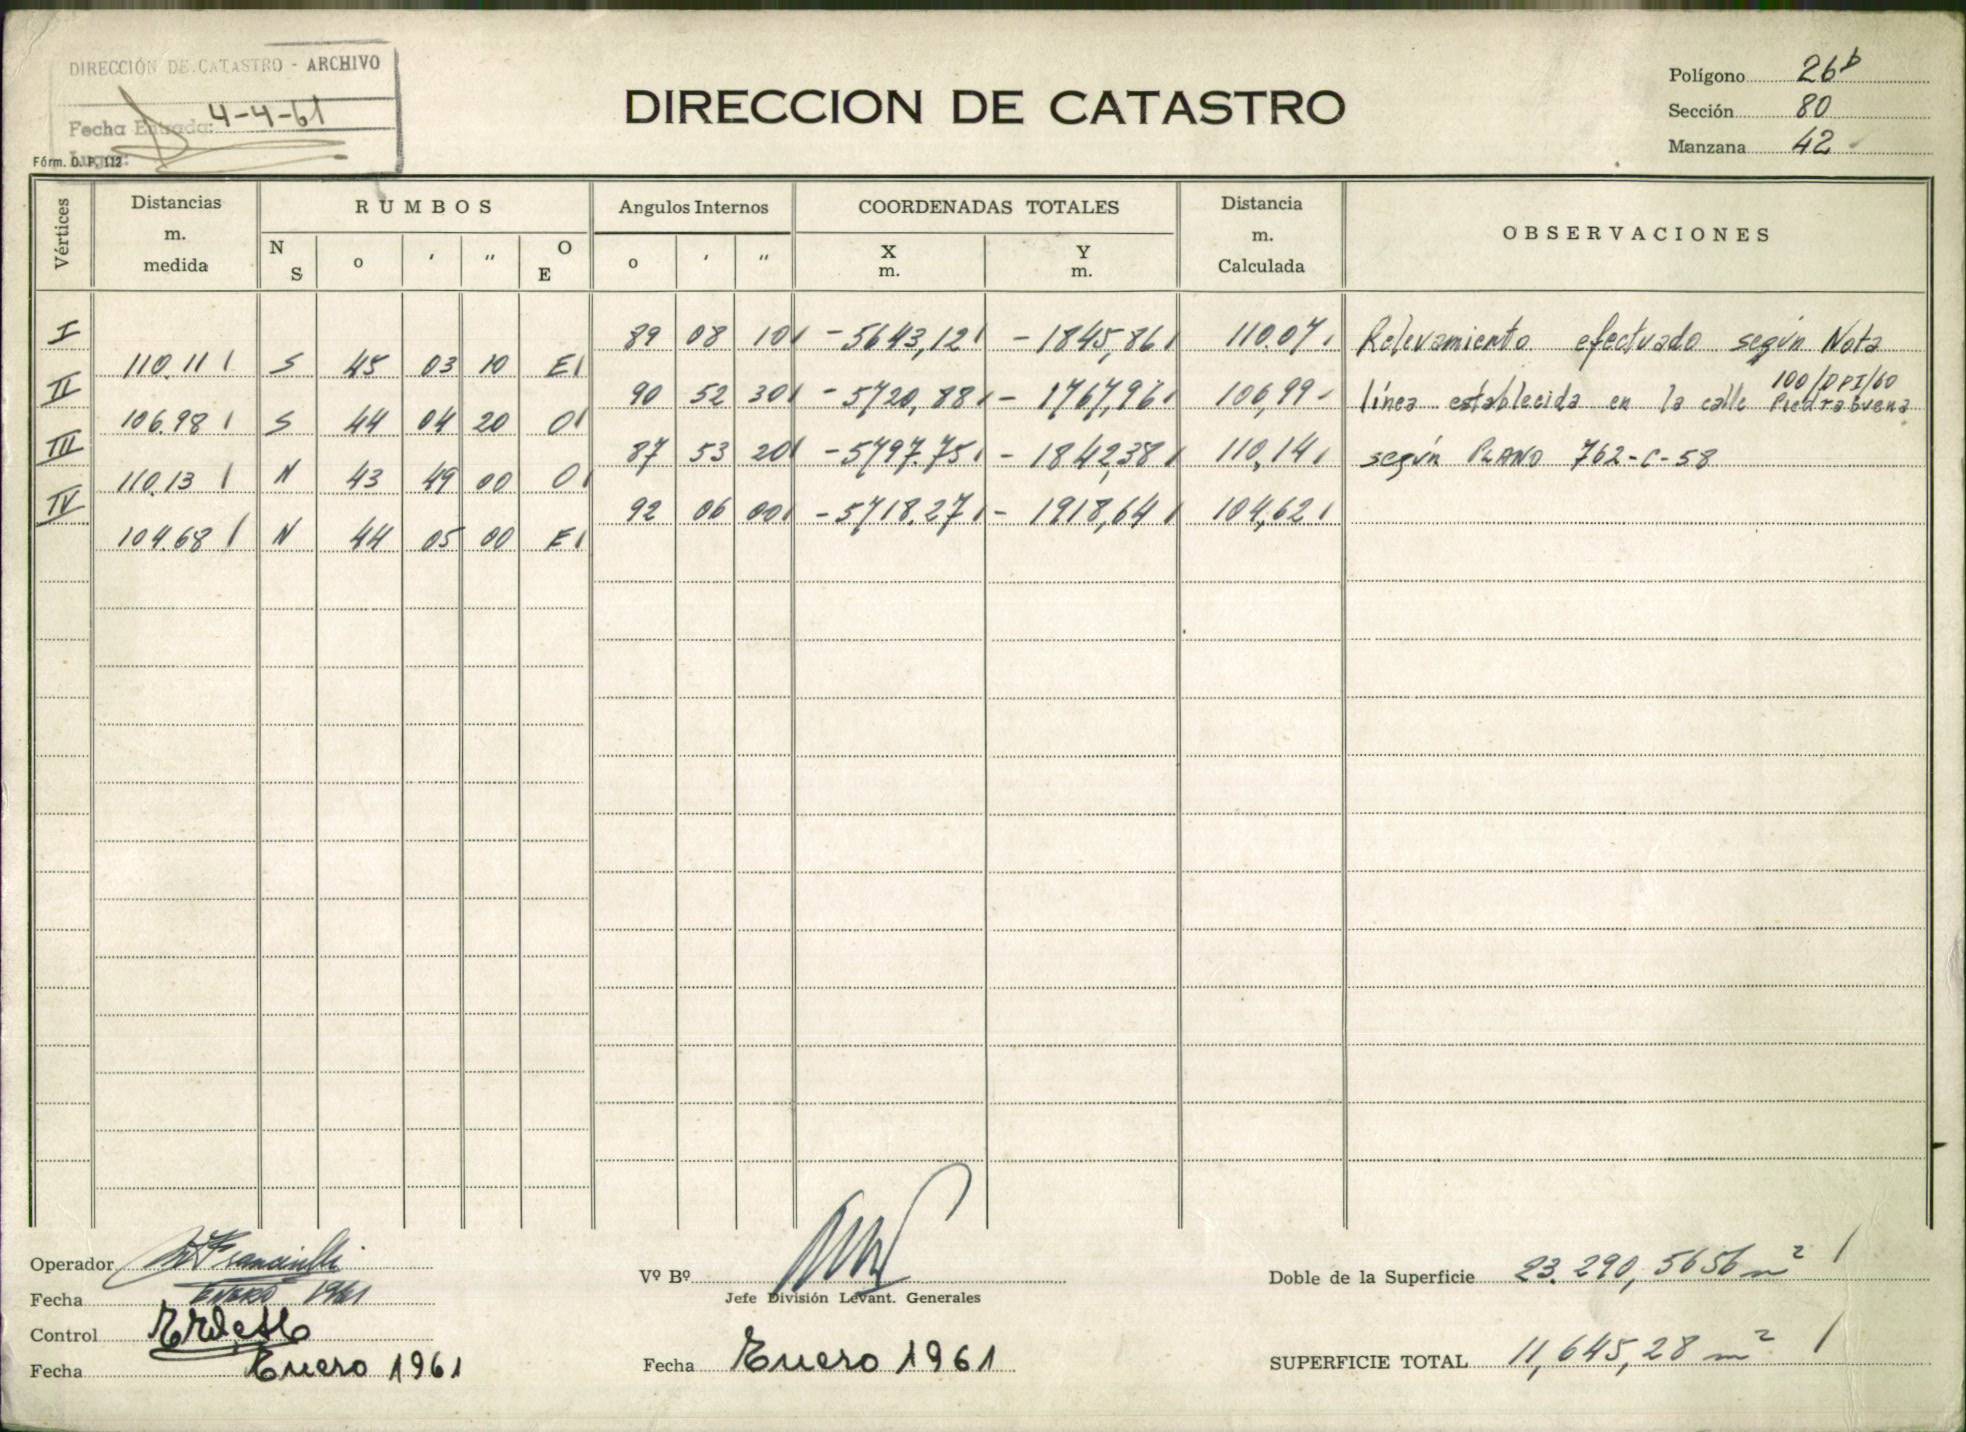 DIRECCIÓN DE CATASTRO - ARCHIVO
Fecha Entrada: 4-4-61
Fórm. D. P. 112
DIRECCION DE CATASTRO
Polígono 26b
Sección 80
Manzana 42
Vértices Distancias m. medida RUMBOS Angulos Internos COORDENADAS TOTALES Distancia m. Calculada OBSERVACIONES
N S o ' " O E o ' " X m. Y m.
I 89 08 10 -5643,12 -1845,86 110.07 Relevamiento efectuado según Nota
110.11 S 45 03 10 E
100/DPI/60
II 90 52 30 -5720,88 -1767,96 106,99 línea establecida en la calle Piedrabuena
106.98 S 44 04 20 O
III 87 53 20 -5797.75 -1842,38 110,14 según PLANO 762-C-58
110.13 N 43 49 00 O
IV 92 06 00 -5718.27 -1918,64 104,62
104.68 N 44 05 00 E
Operador
Fecha ENERO 1961
Control
Fecha Enero 1961
Vº Bº
Jefe División Levant. Generales
Fecha Enero 1961
Doble de la Superficie 23.290,5656 m²
SUPERFICIE TOTAL 11,645,28 m²